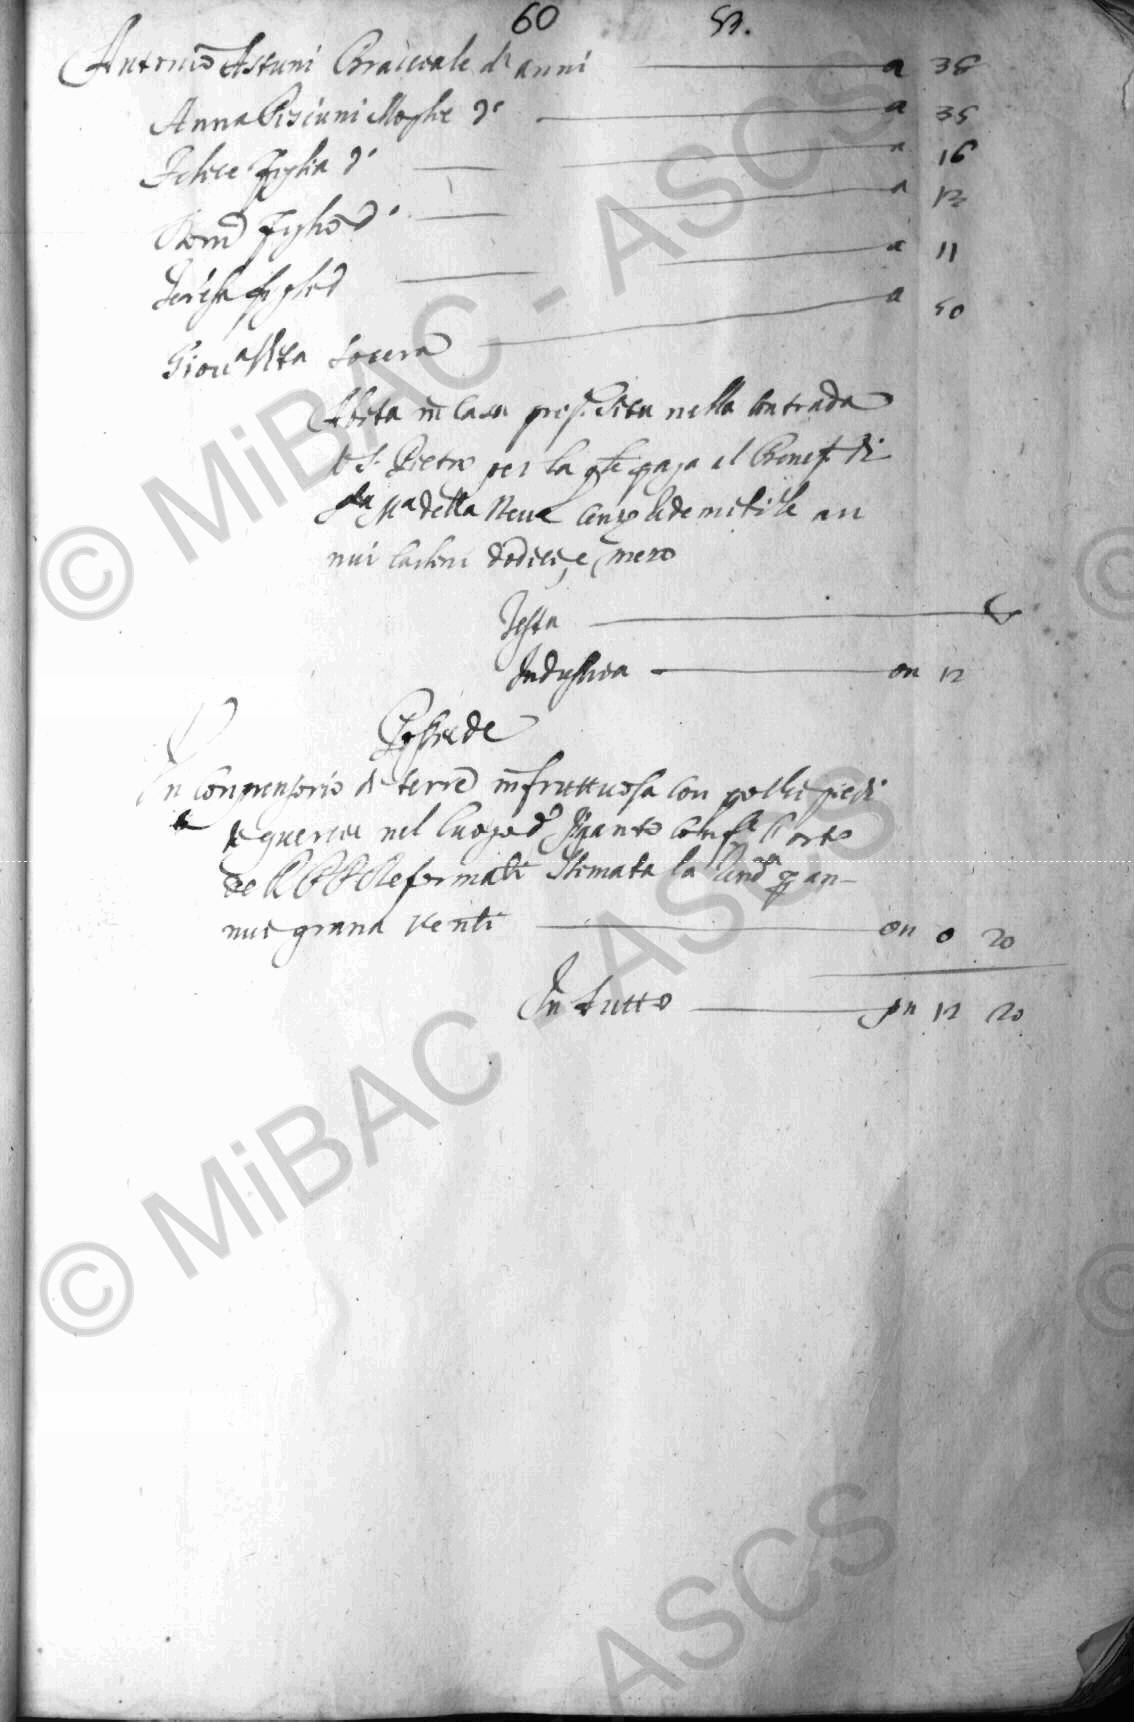 60 57.
Antonio Astuni Bracciale d'anni a 38
Anna Pisciuni Moglie d' a 35
Felice figlia d' a 16
Dom.co figlio d' a 12
Teresa figlia d' a 11
Giou.a Vita socera a 50
Abita in casa prop.a sita nella contrada
di S. Pietro per la qle paga al Benef. di
S.ta M.a della Neve censo redemibile an
nui carlini dodici, e mezo
Testa
Industria on 12
Possiede
Un Comprensorio di terre infruttuosa con pochi piedi
di querce nel luogo d.o conf.e l'orto
de RR PP Reformati stimata la rend.a p an-
nui grana venti on 0 20
In tutto on 12 20
© MiBAC - ASCS
© MiBAC - ASCS
ASCS